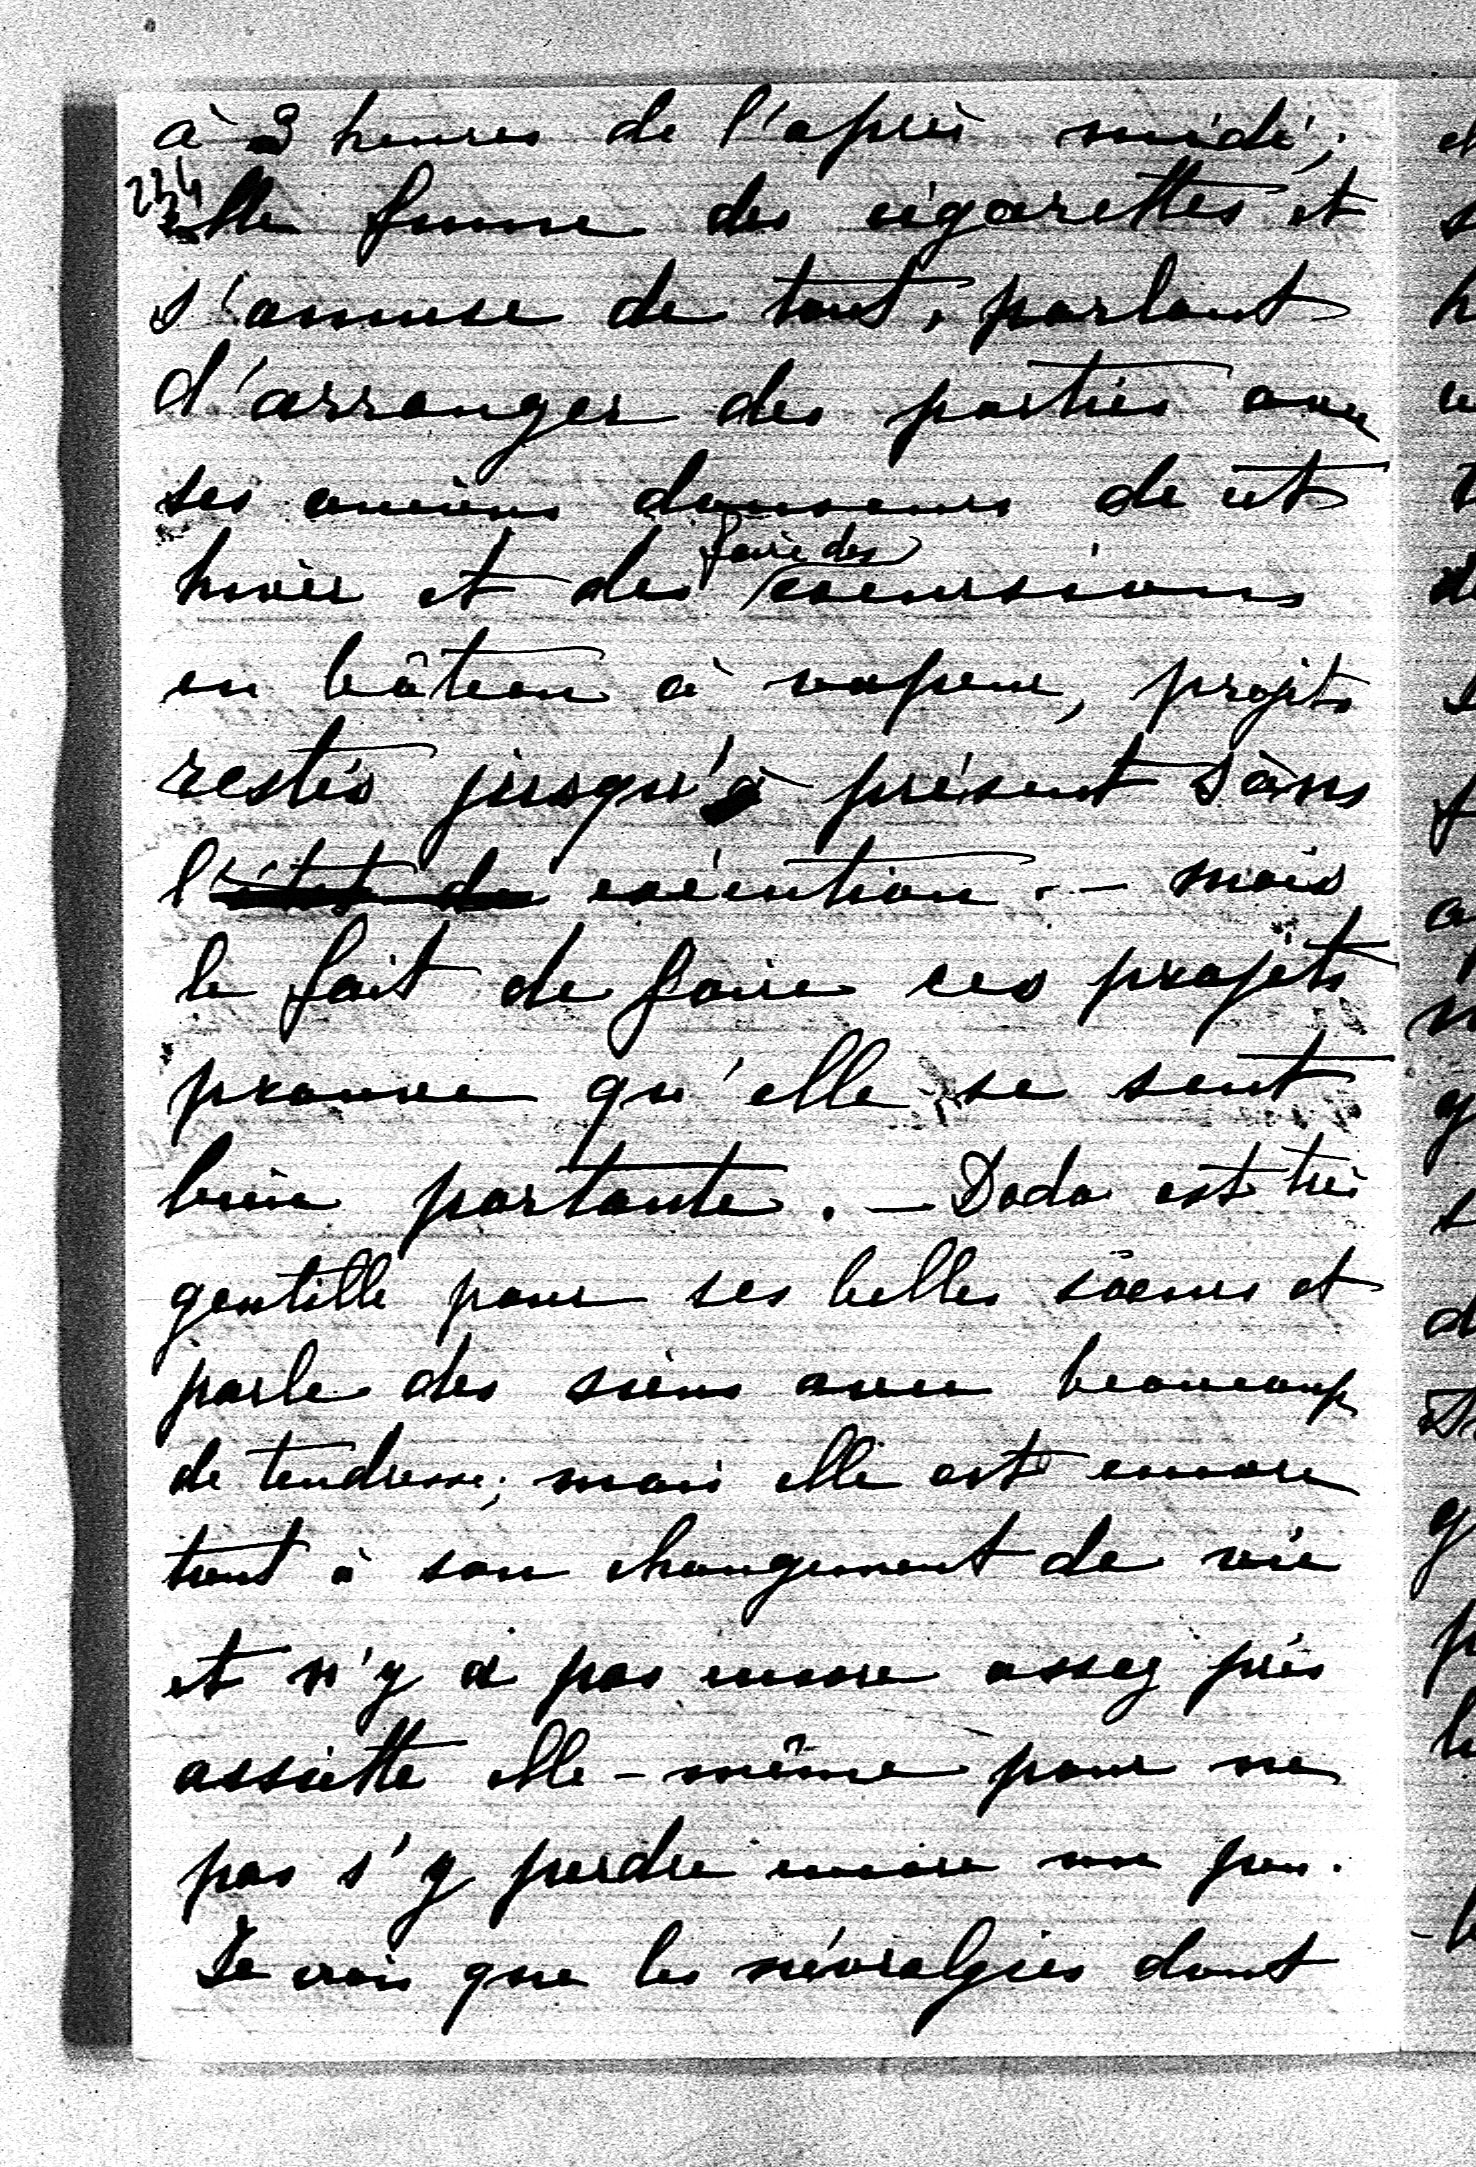 à 3 heures de l'après midi;
234
elle fume des cigarettes et
s'amuse de tout, parlant
d'arranger des parties avec
ses anciens danseurs de cet
hiver et des faire des excursions
en bâteau à vapeur, projets
restés jusqu'à présent sans
l'état de exécution. - mais
le fait de faire ces projets
prouve qu'elle se sent
bien portante. - Dada est très
gentille pour ses belles soeurs et
parle des siens avec beaucoup
de tendresse; mais elle est encore
tout à son changement de vie
et n'y a pas encore assez pris
assiette elle-même pour ne
pas s'y perdre encore un peu.
Je crois que les névralgies dont